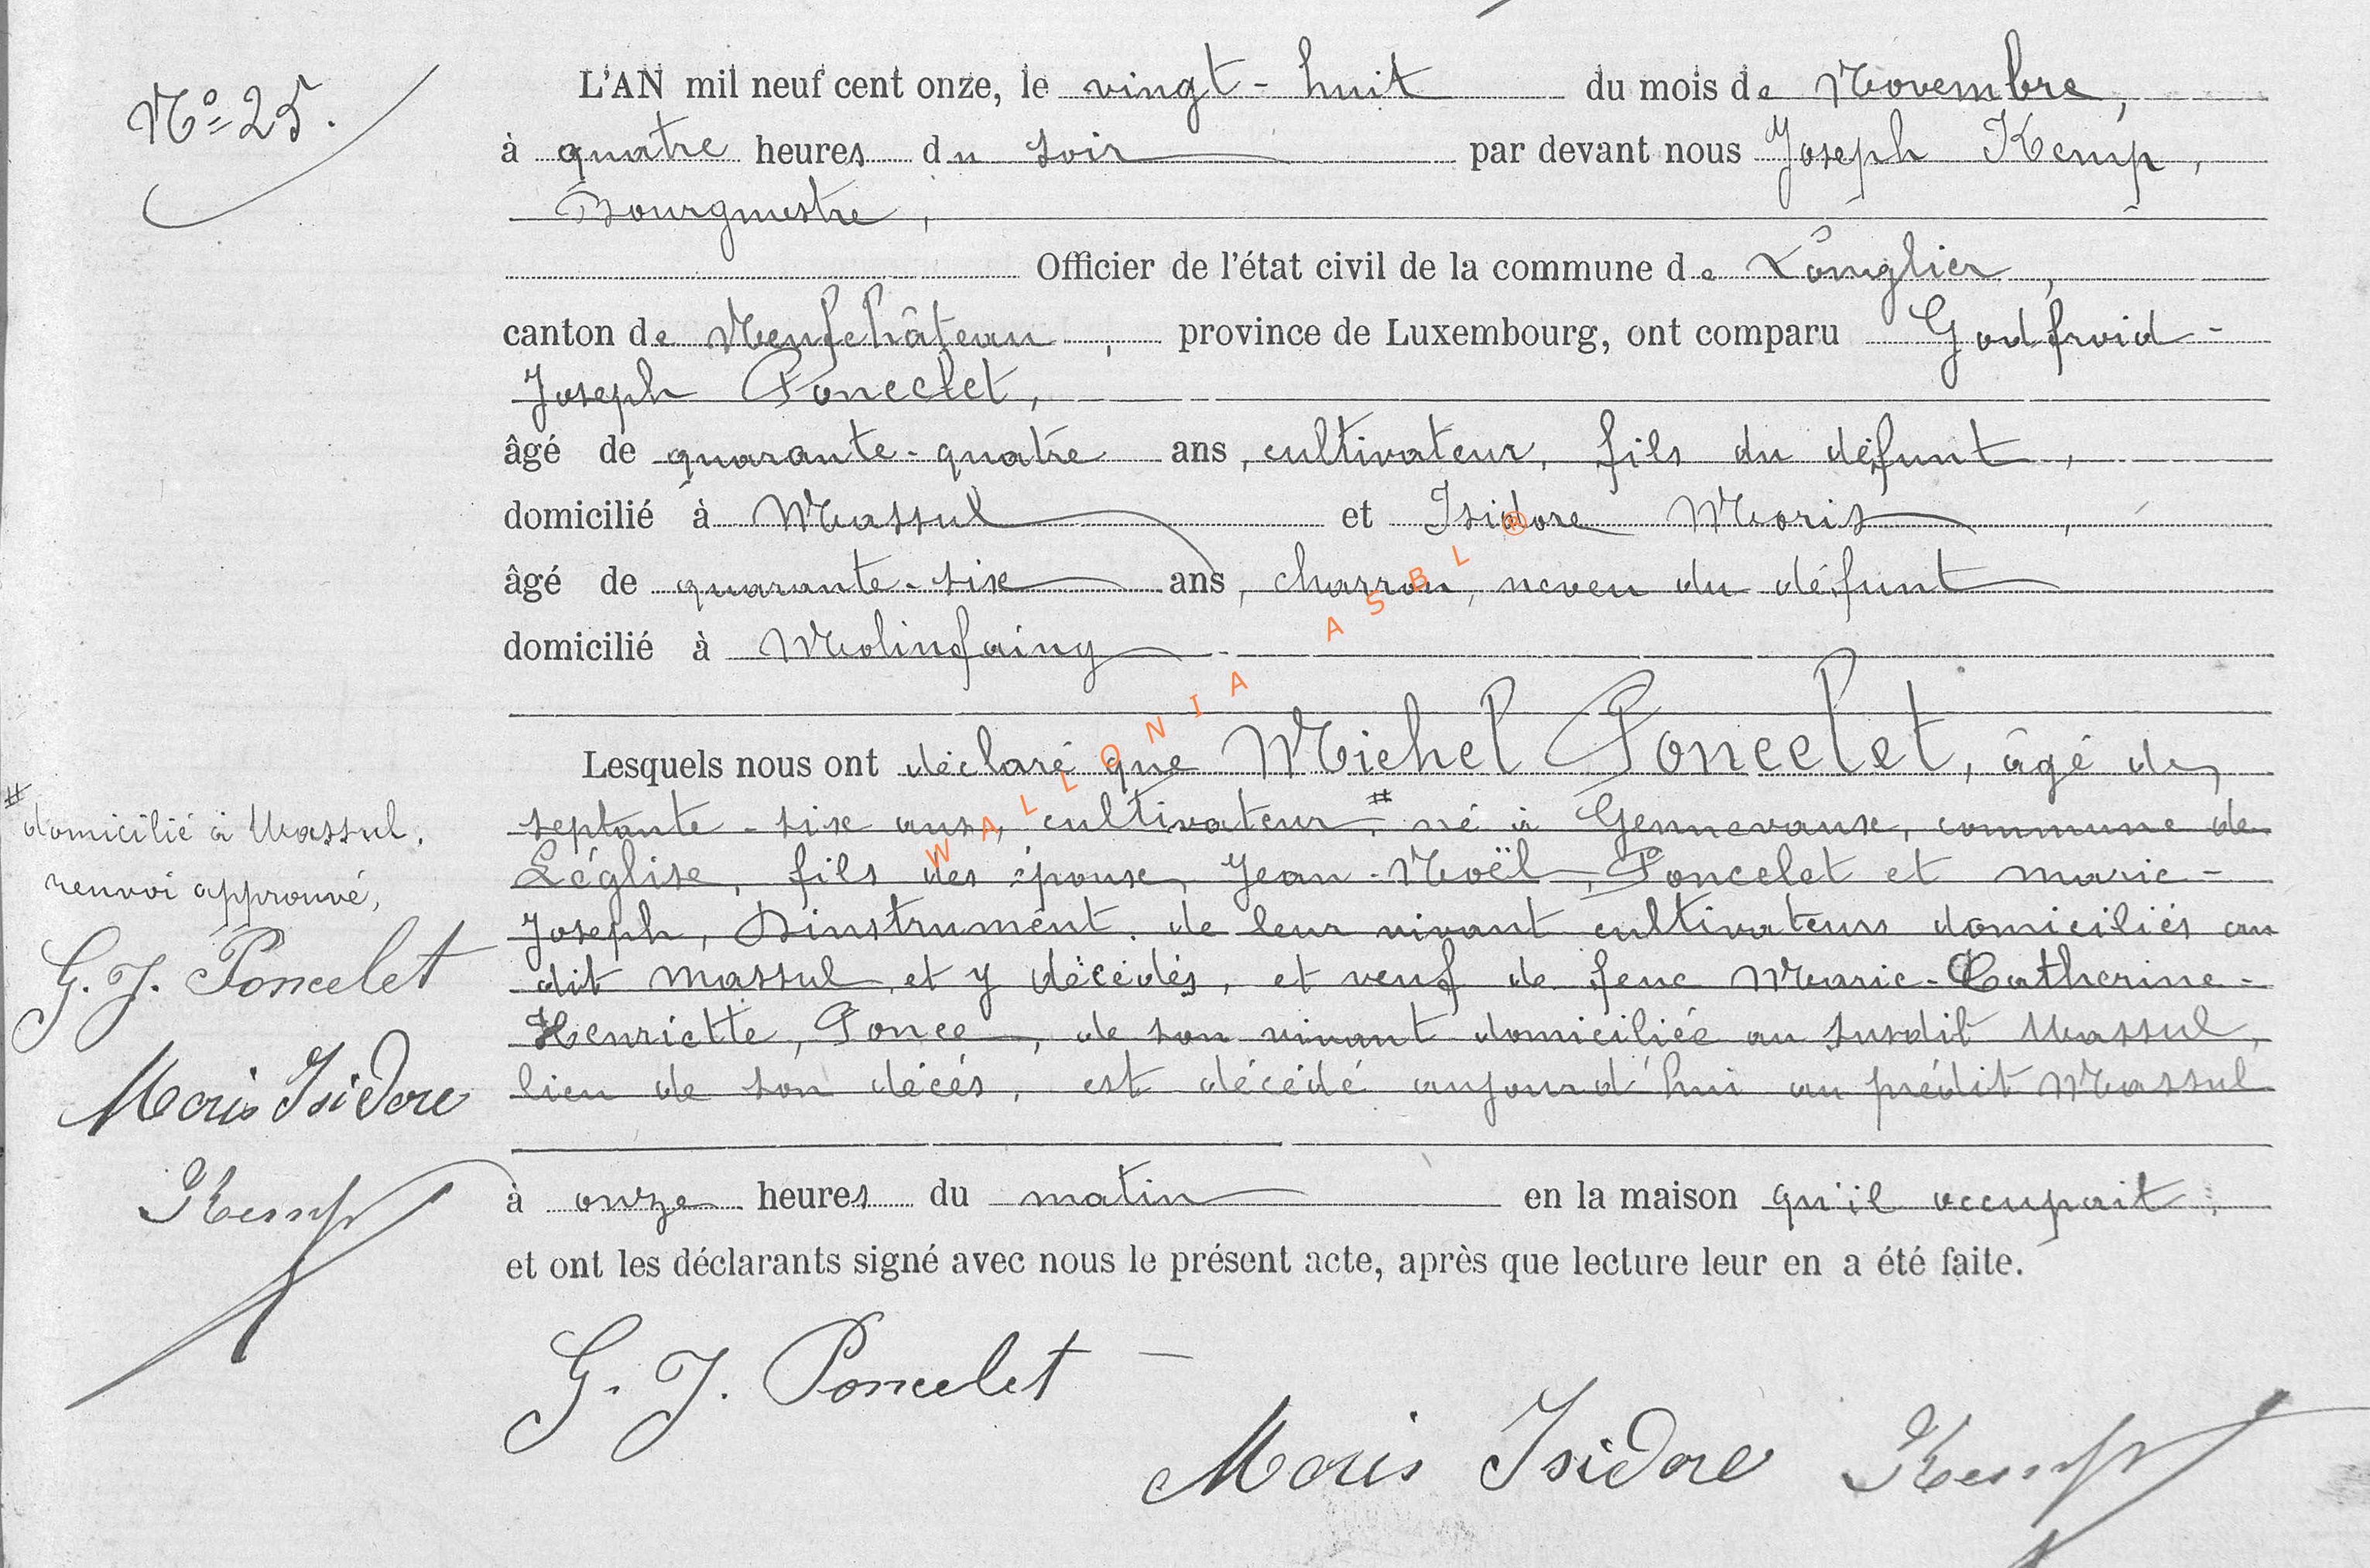 N° 25.
L'AN mil neuf cent onze, le vingt-huit du mois de Novembre,
à quatre heures du soir par devant nous Joseph Kemp,
Bourgmestre,
Officier de l'état civil de la commune de Longlier,
canton de Neufchâteau, province de Luxembourg, ont comparu Godfroid-
Joseph Poncelet,
âgé de quarante-quatre ans, cultivateur, fils du défunt,
domicilié à Massul et Isidore Moris,
âgé de quarante-six ans, charron, neveu du défunt
domicilié à Molinfaing
Lesquels nous ont déclaré que Michel Poncelet, âgé de
septante-six ans, cultivateur,# né à Gennevaux, commune de
Léglise, fils des époux Jean-Noël, Poncelet et Marie-
Joseph, Dinstrument, de leur vivant cultivateurs domiciliés au
dit Massul et y décédés, et veuf de feue Marie-Catherine-
Henriette, Ponce, de son vivant domiciliée au susdit Massul,
lieu de son décès, est décédé aujourd'hui au prédit Massul
à onze heures du matin en la maison qu'il occupait,
et ont les déclarants signé avec nous le présent acte, après que lecture leur en a été faite.
G. J. Poncelet
Moris Isidore Kemp
# domicilié à Massul.
renvoi approuvé,
G. J. Poncelet
Moris Isidore
Kemp
WALLONIA ASBL ®